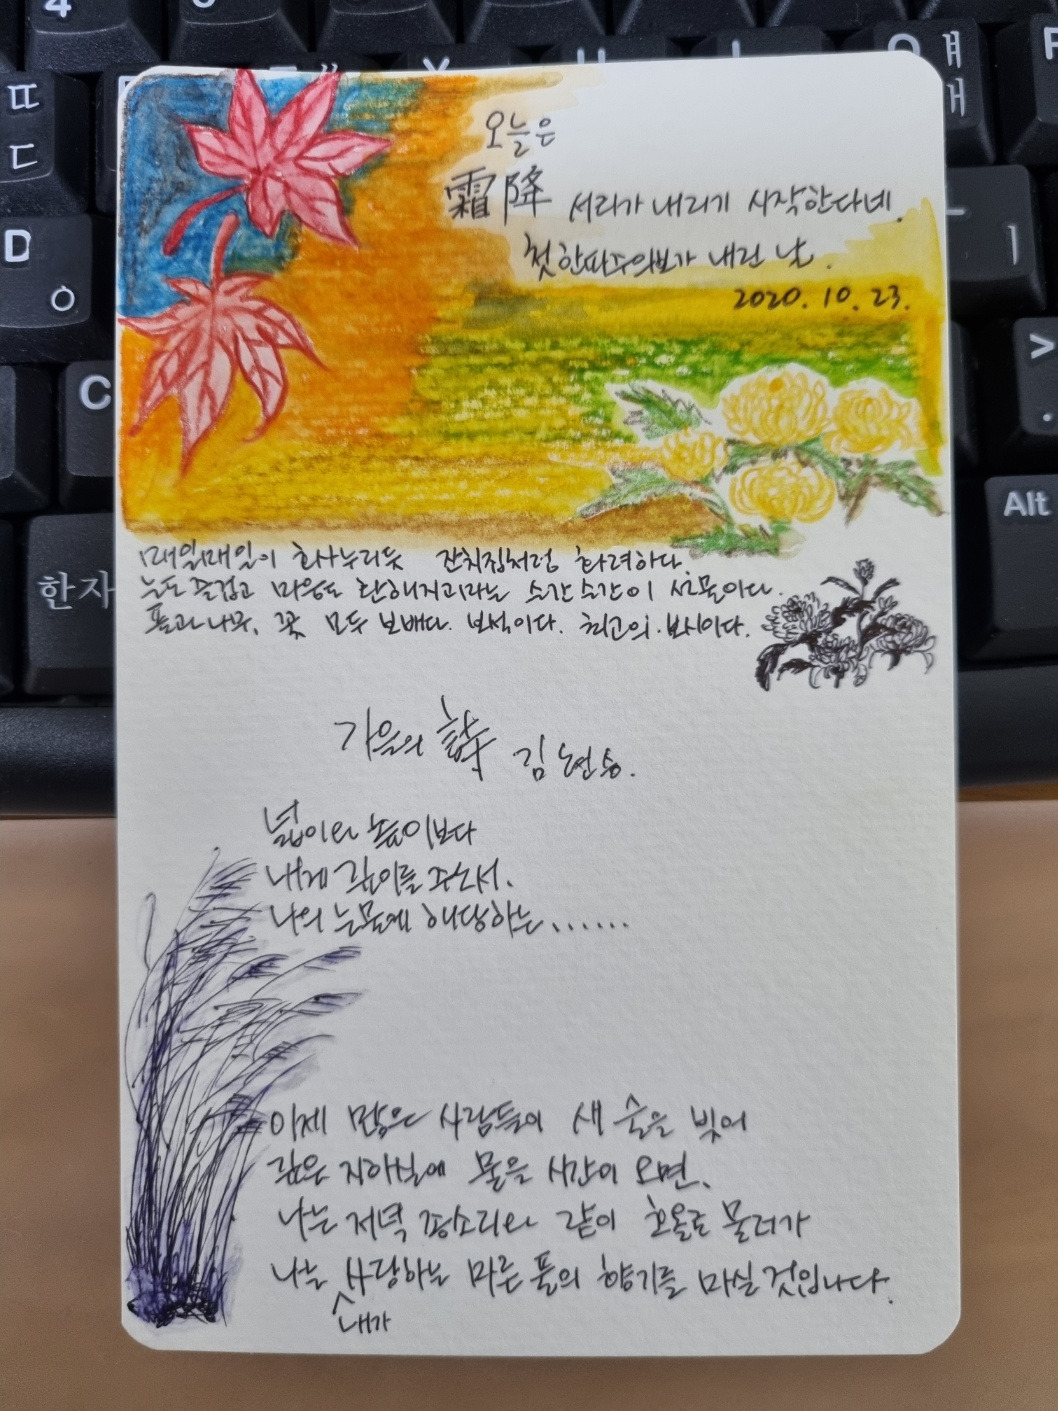 오늘은
霜降 서리가 내리기 시작한다네.
첫 한파주의보가 내린 날.
2020. 10. 23.
매일매일이 화사누리듯 잔치집처럼 화려하다.
눈도 즐겁고 마음도 환해지고라는 순간순간이 선물이다.
풀과 나무, 꽃 모두 보배다. 보석이다. 최고의 보시이다.
가을의 詩 김현승.
넓이와 높이보다
내게 깊이를 주소서.
나의 눈물에 해당하는......
이제 많은 사람들이 새 술을 빚어
깊은 지하실에 묻을 시간이 오면,
나는 저녁 종소리와 같이 호올로 물러가
나는 내가 사랑하는 마른 풀의 향기를 마실 것입니다.
4
ㄸ
ㄷ
D
ㅇ
C
한자
Alt
ㅒ
ㅐ
ㅣ
>
.